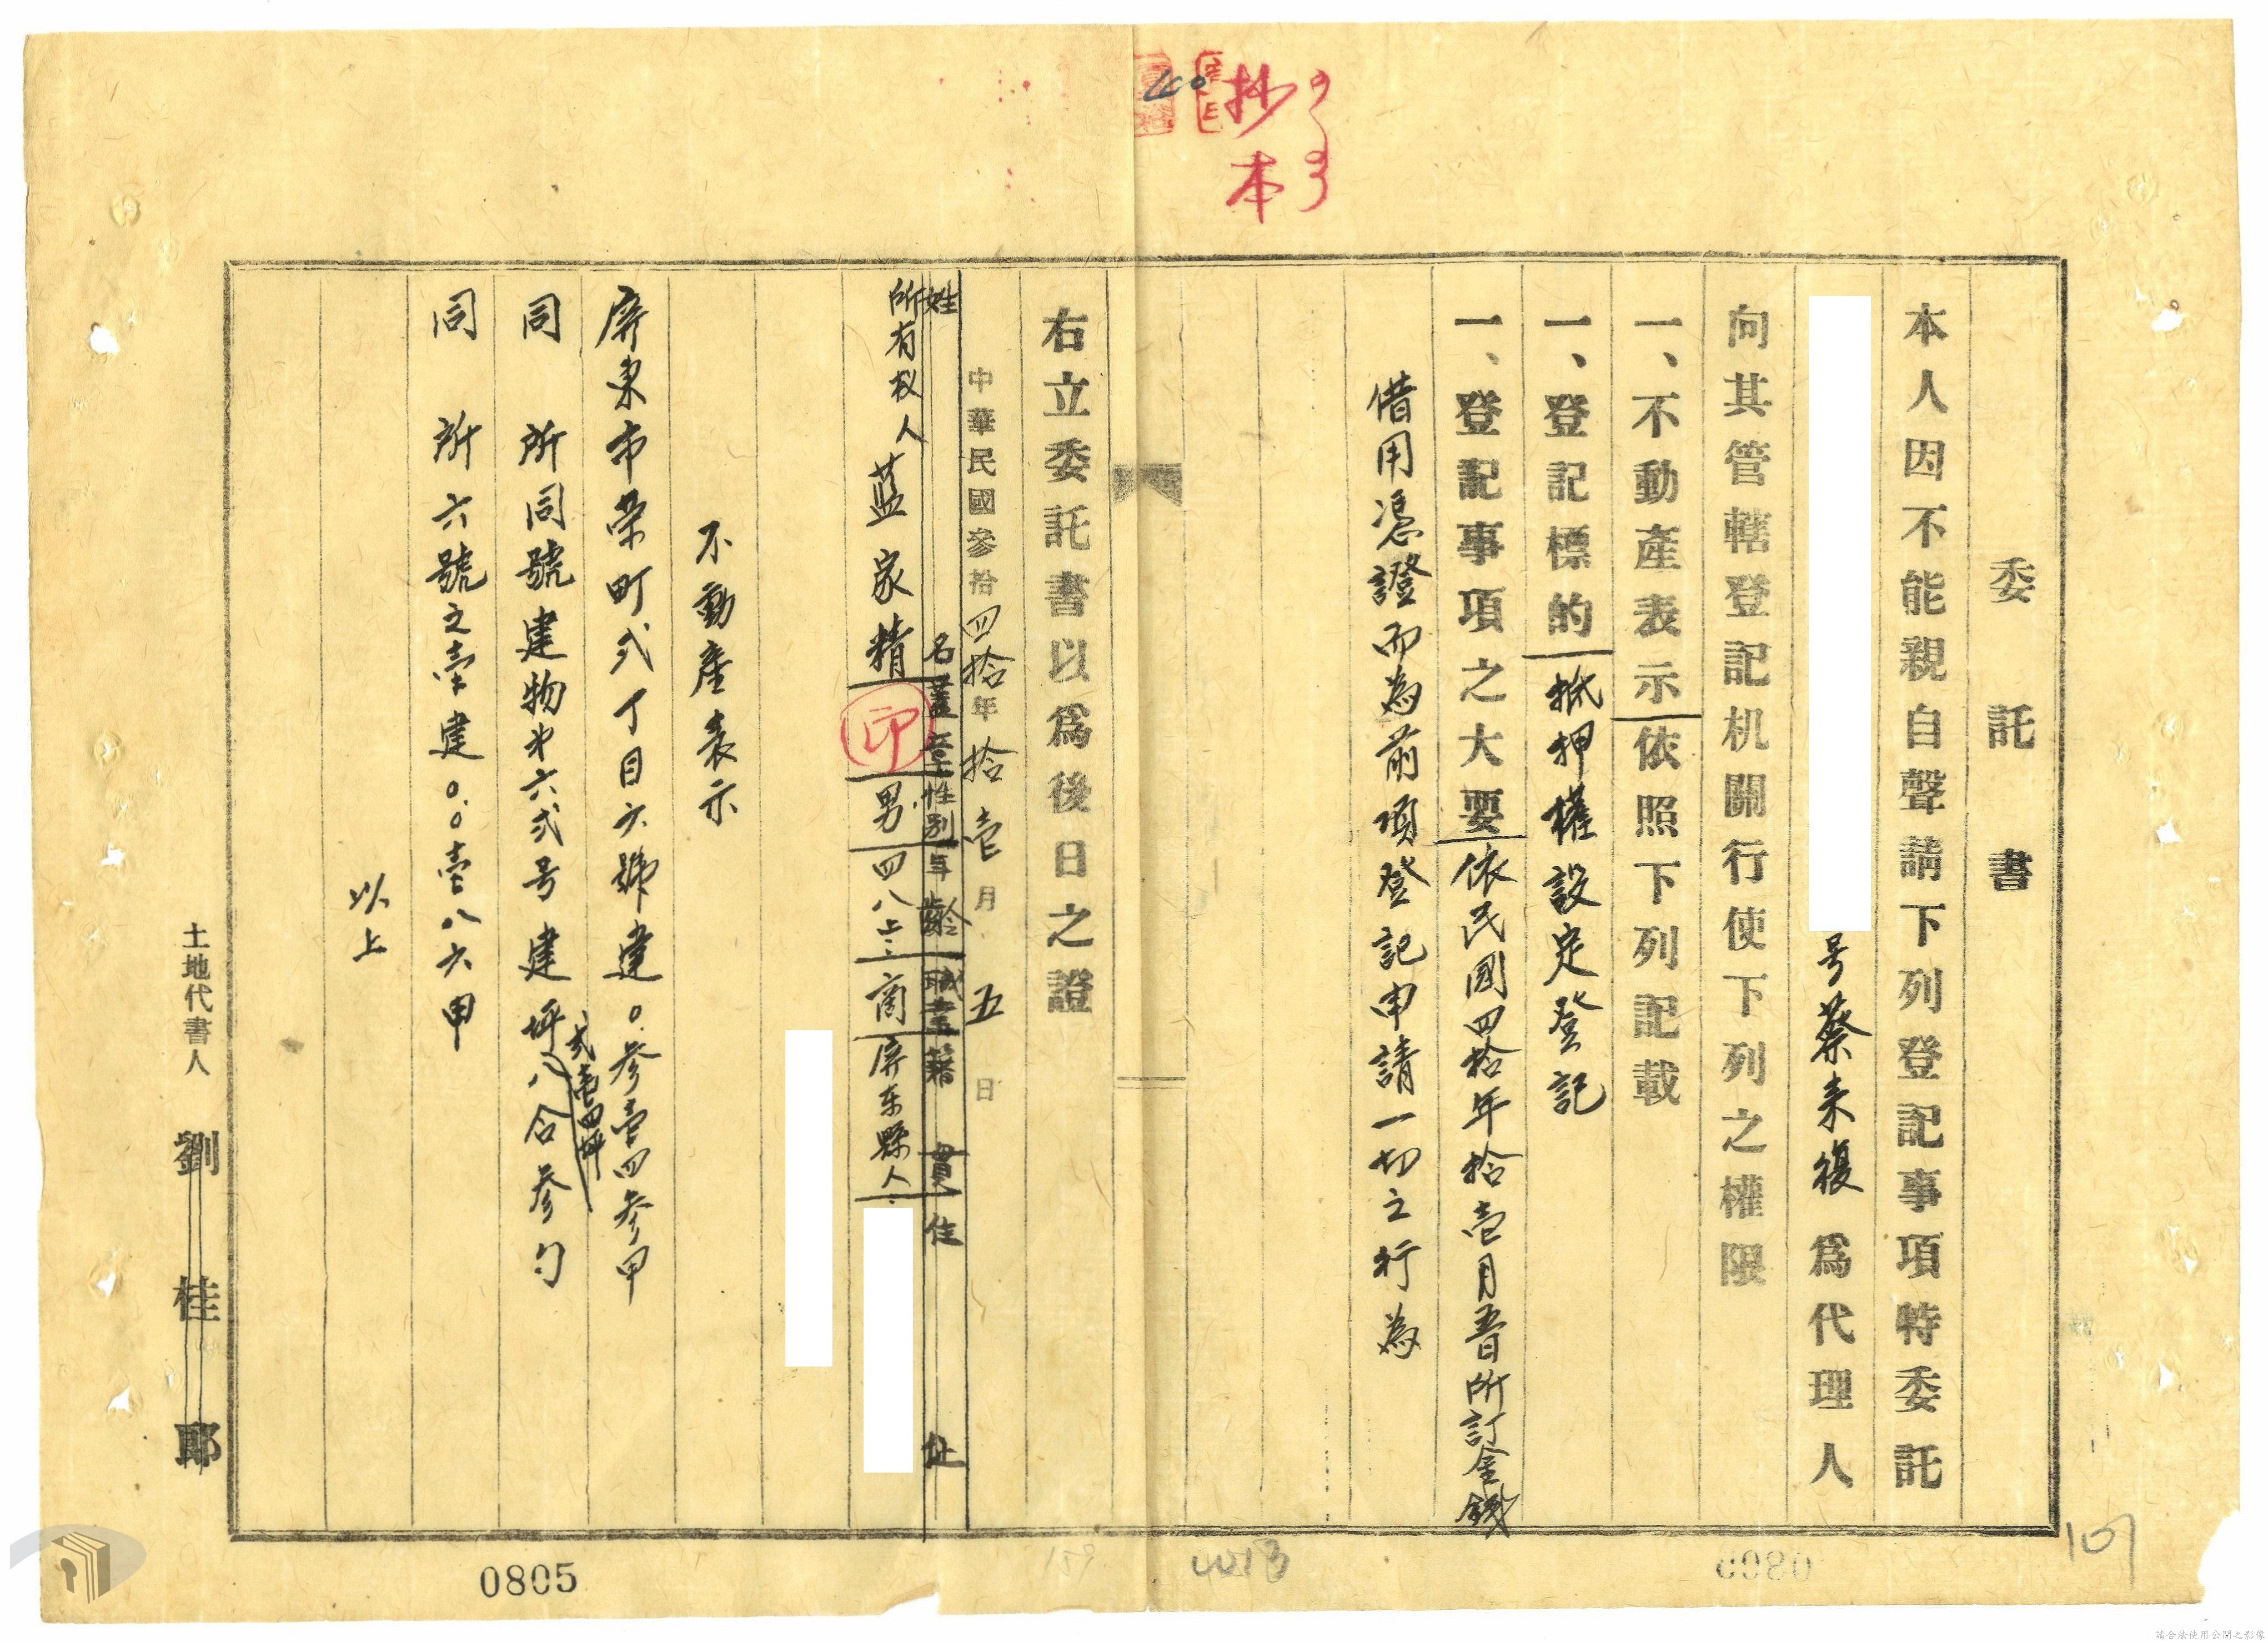 抄本
委託書
本人因不能親自聲請下列登記事項特委託
号蔡来復為代理人
向其管轄登記机關行使下列之權限
一、不動產表示依照下列記載
一、登記標的抵押權設定登記
一、登記事項之大要依民國四拾年拾壹月五日所訂金錢
借用憑證而為前項登記申請一切之行為
右立委託書以為後日之證
中華民國四拾年拾壹月五日
姓名蓋章性別年齡職業籍貫住址
所有权人藍家精印男四八上商屏东縣人
不動產表示
屏東市榮町弍丁目六號建〇.参壹四参甲
同所同號建物第六弍号建坪八合参勺
弍壹四坪
同所六號之壹建〇.〇壹八六甲
以上
土地代書人 劉桂郎
0805
107
請合法使用公開之影像